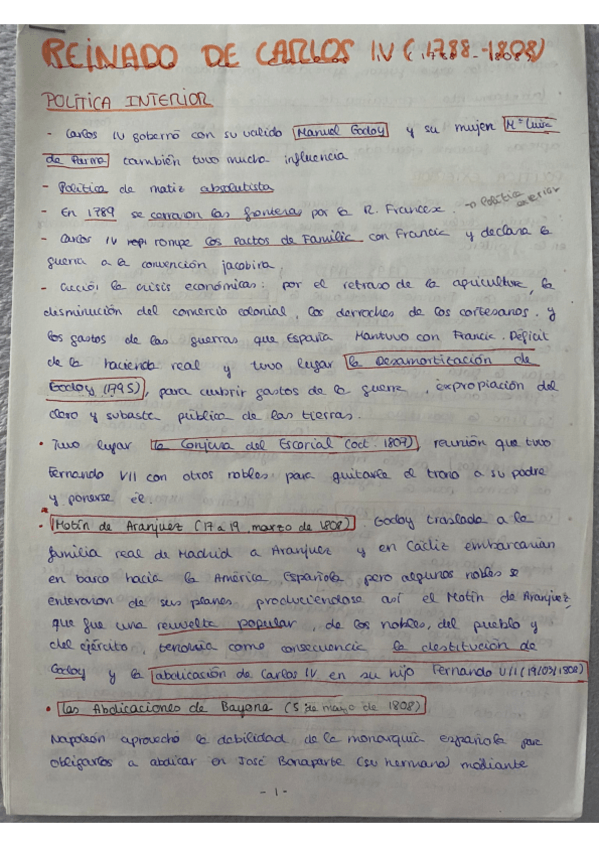 REINADO DE CARLOS IV (1788-1808)
POLÍTICA INTERIOR
- Carlos IV gobernó con su valido Manuel Godoy y su mujer Mª Luisa
de Parma también tuvo mucha influencia
- Política de matiz absolutista
- En 1789 se cerraron las fronteras por la R. Francesa. → Política
exterior
- Carlos IV rompe los Pactos de Familia con Francia y declara la
guerra a la convención jacobina.
- crisis económicas: por el retraso de la agricultura, la
desminución del comercio colonial, los derroches de los cortesanos y
los gastos de las guerras que España Mantuvo con Francia. Déficit
de la hacienda real y tuvo lugar la Desamortización de
Godoy (1795), para cumbrir gastos de la guerra, expropiación del
clero y subasta pública de las tierras.
• Tuvo lugar la Conjura del Escorial (oct. 1807), reunión que tuvo
Fernando VII con otros nobles para quitarle el trono a su padre
y ponerse él.
• Motín de Aranjuez (17 a 19 marzo de 1808) Godoy traslada a la
familia real de Madrid a Aranjuez y en Cádiz embarcarían
en barco hacia la América Española pero algunos nobles se
enteraron de sus planes produciéndose así el Motín de Aranjuez,
que fue una revuelta popular, de los nobles, del pueblo y
del ejército, tendría como consecuencia la destitución de
Godoy y la abdicación de Carlos IV en su hijo Fernando VII (19/03/1808)
• Las Abdicaciones de Bayona (5 de mayo de 1808)
Napoleón aprovechó la debilidad de la monarquía española para
obligarlos a abdicar en José Bonaparte (su hermano) mediante
- 1 -